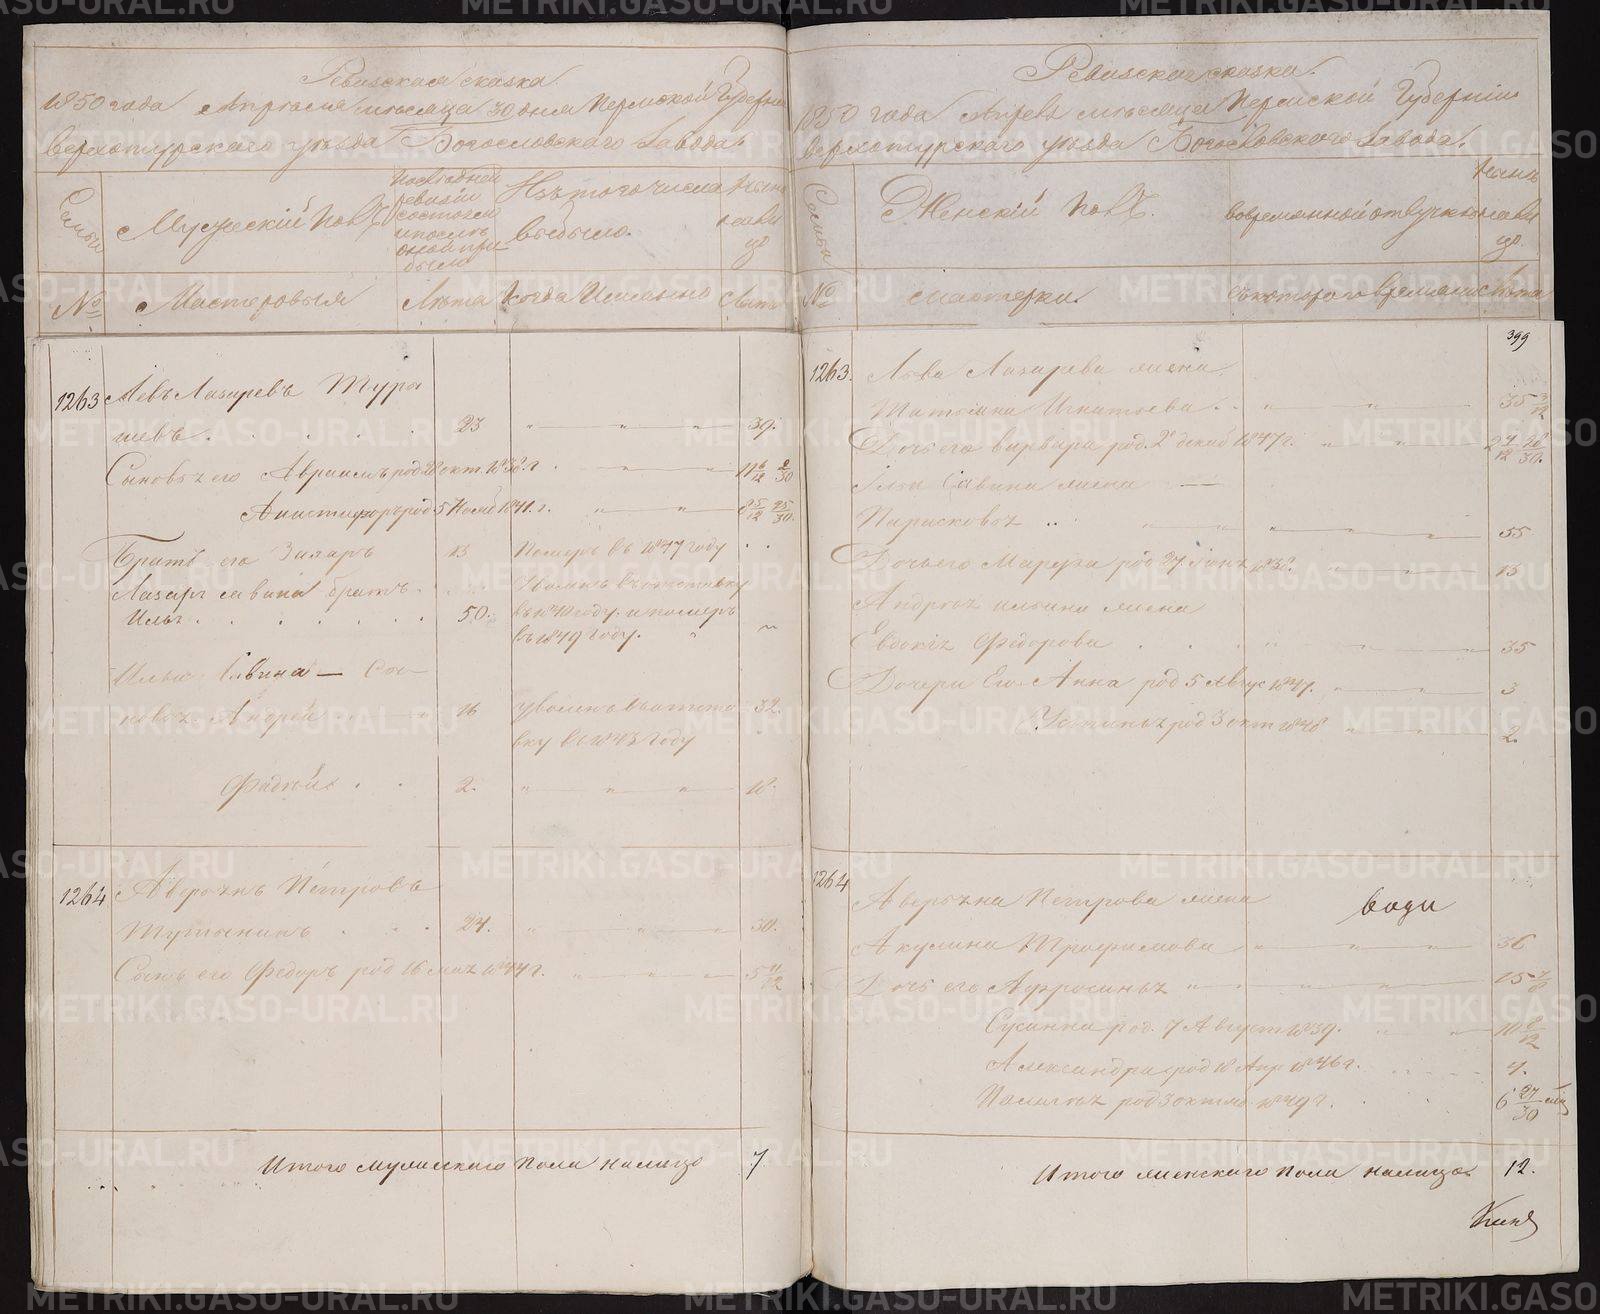 Ревизская сказка.
1850 года Апреля месяца 30 дня Пермской Губернии
Верхотурского уезда Богословского Завода.
Семьи
Мужеский полъ.
Последней
ревизии
состояло
и после
оной при-
было
Изъ того числа
выбыло.
Ныне
нали
цо
№
Мастеровыя
Лета
Когда Именно
Лета
1263
Левъ Лазаревъ Туры
шевъ . . . . . 23 " " " 39.
Сыновья его Авраамъ род 28 окт. 1838 г. " " " 11 6/12 2/30
Анистифоръ род 5 Нояб 1841. г. " " 8 5/12 25/30.
Братъ его Захаръ 13 Померъ въ 1847 году . .
Лазаря Савина братъ.
Илья . . . . . . . 50.
Уволенъ въ отставку
въ 1840 году. и померъ
въ 1849 году. "
Ильи Савина — Сы—
новья Андрей 16 уволенъ въ отста 32.
вку въ 1843 году
Фадей . . 2. " " " 18.
1264
Аверьянъ Петровъ
. . . 24. " " " 30.
Сынъ его Федоръ род 16 мая 1844 г. " " " 5 11/12
Итого мужескаго пола налицо 7
Ревизская сказка.
1850 года Апреля месяца Пермской Губернии
Верхотурского уезда Богословского Завода.
Семьи
Женский полъ.
во временной отлучке
Ныне
нали
цо.
№
мастерки.
съ которого времени
Лета
399
1263.
Льва Лазарева жена
Татьяна Игнатьева . . " " 35 3/12
Дочь его Варвара род. 2 декаб 1847 г. " " 2 4/12 28/30.
Ильи Савина жена —
Парасковья .. " " " " 55
Дочь его Марфа род 27 Июня 1838. " " 13
Андрея Ильина жена
Евдокия Федорова . . . " " " 35
Дочери Его Анна род 5 Август 1847. " " 3
Устинья род 3 окт 1848 " " 2.
1264
Аверьяна Петрова жена
Акулина Трофимова " " " 36
Дочь его Афросинья " " " "
Сусанна род. 7 Август 1839. " "
Александра род 18 Апр 1846 г. 4.
Пелагея род 3 октяб 1849 г. . . 6 27/30 мес
Итого женскаго пола налицо 12.